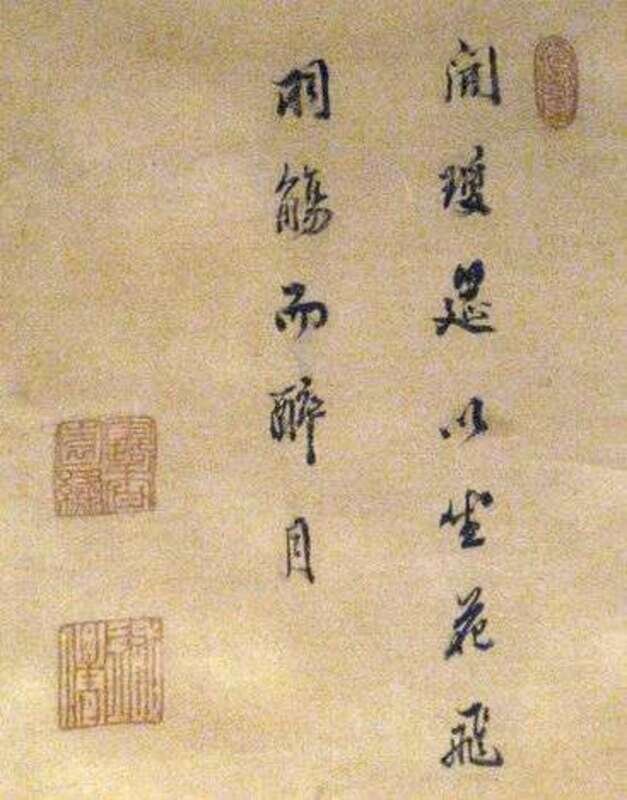 開瓊筵以坐花飛
羽觴而醉月